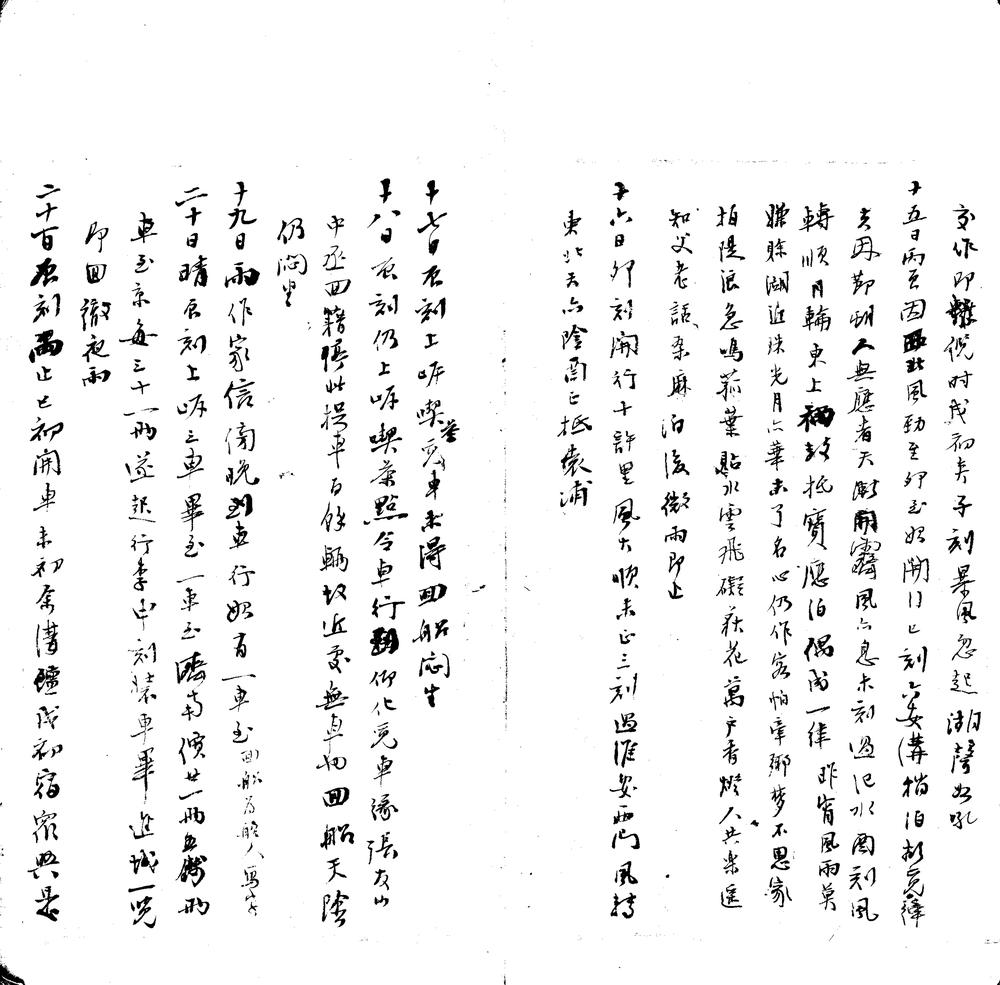 亥作即時戌初矣子刻暴風忽起湖聲如吼
十五日丙寅因西北風勁至卯至始開行巳刻六安溝梢泊
夫因節朝人無應者天漸開霽風亦息未刻過氾水酉刻風
轉順月輪東上初鼓抵寶應泊偶成一律 昨宵風雨莫
賒湖近珠光月六華未了名心仍作客怕牽鄉夢不思家
拍隄浪急鳴菰葉點水雲飛礙荻花萬戶香燈人共樂遙
知父老話桑麻 泊後微雨即止
十六日卯刻開行十許里風大順未正三刻過淮安西門風轉
東北天亦陰酉正抵袁浦
十七日辰刻上岸喫茶覓車未得回船悶坐
十八日辰刻仍上岸喫茶點令車行仰化覓車緣張友山
中丞回籍俱此提車百餘輛故近處無車也回船天陰
仍悶坐
十九日雨作家信傍晚到車行始有一車至回船
二十日晴辰刻上岸三車畢至一車至濟南價廿一兩五錢兩
車至京每三十一兩遂起行李申刻裝車畢進城一覽
即回徹夜雨
二十一日辰刻雨止巳初開車未初余溝戌初宿眾興是